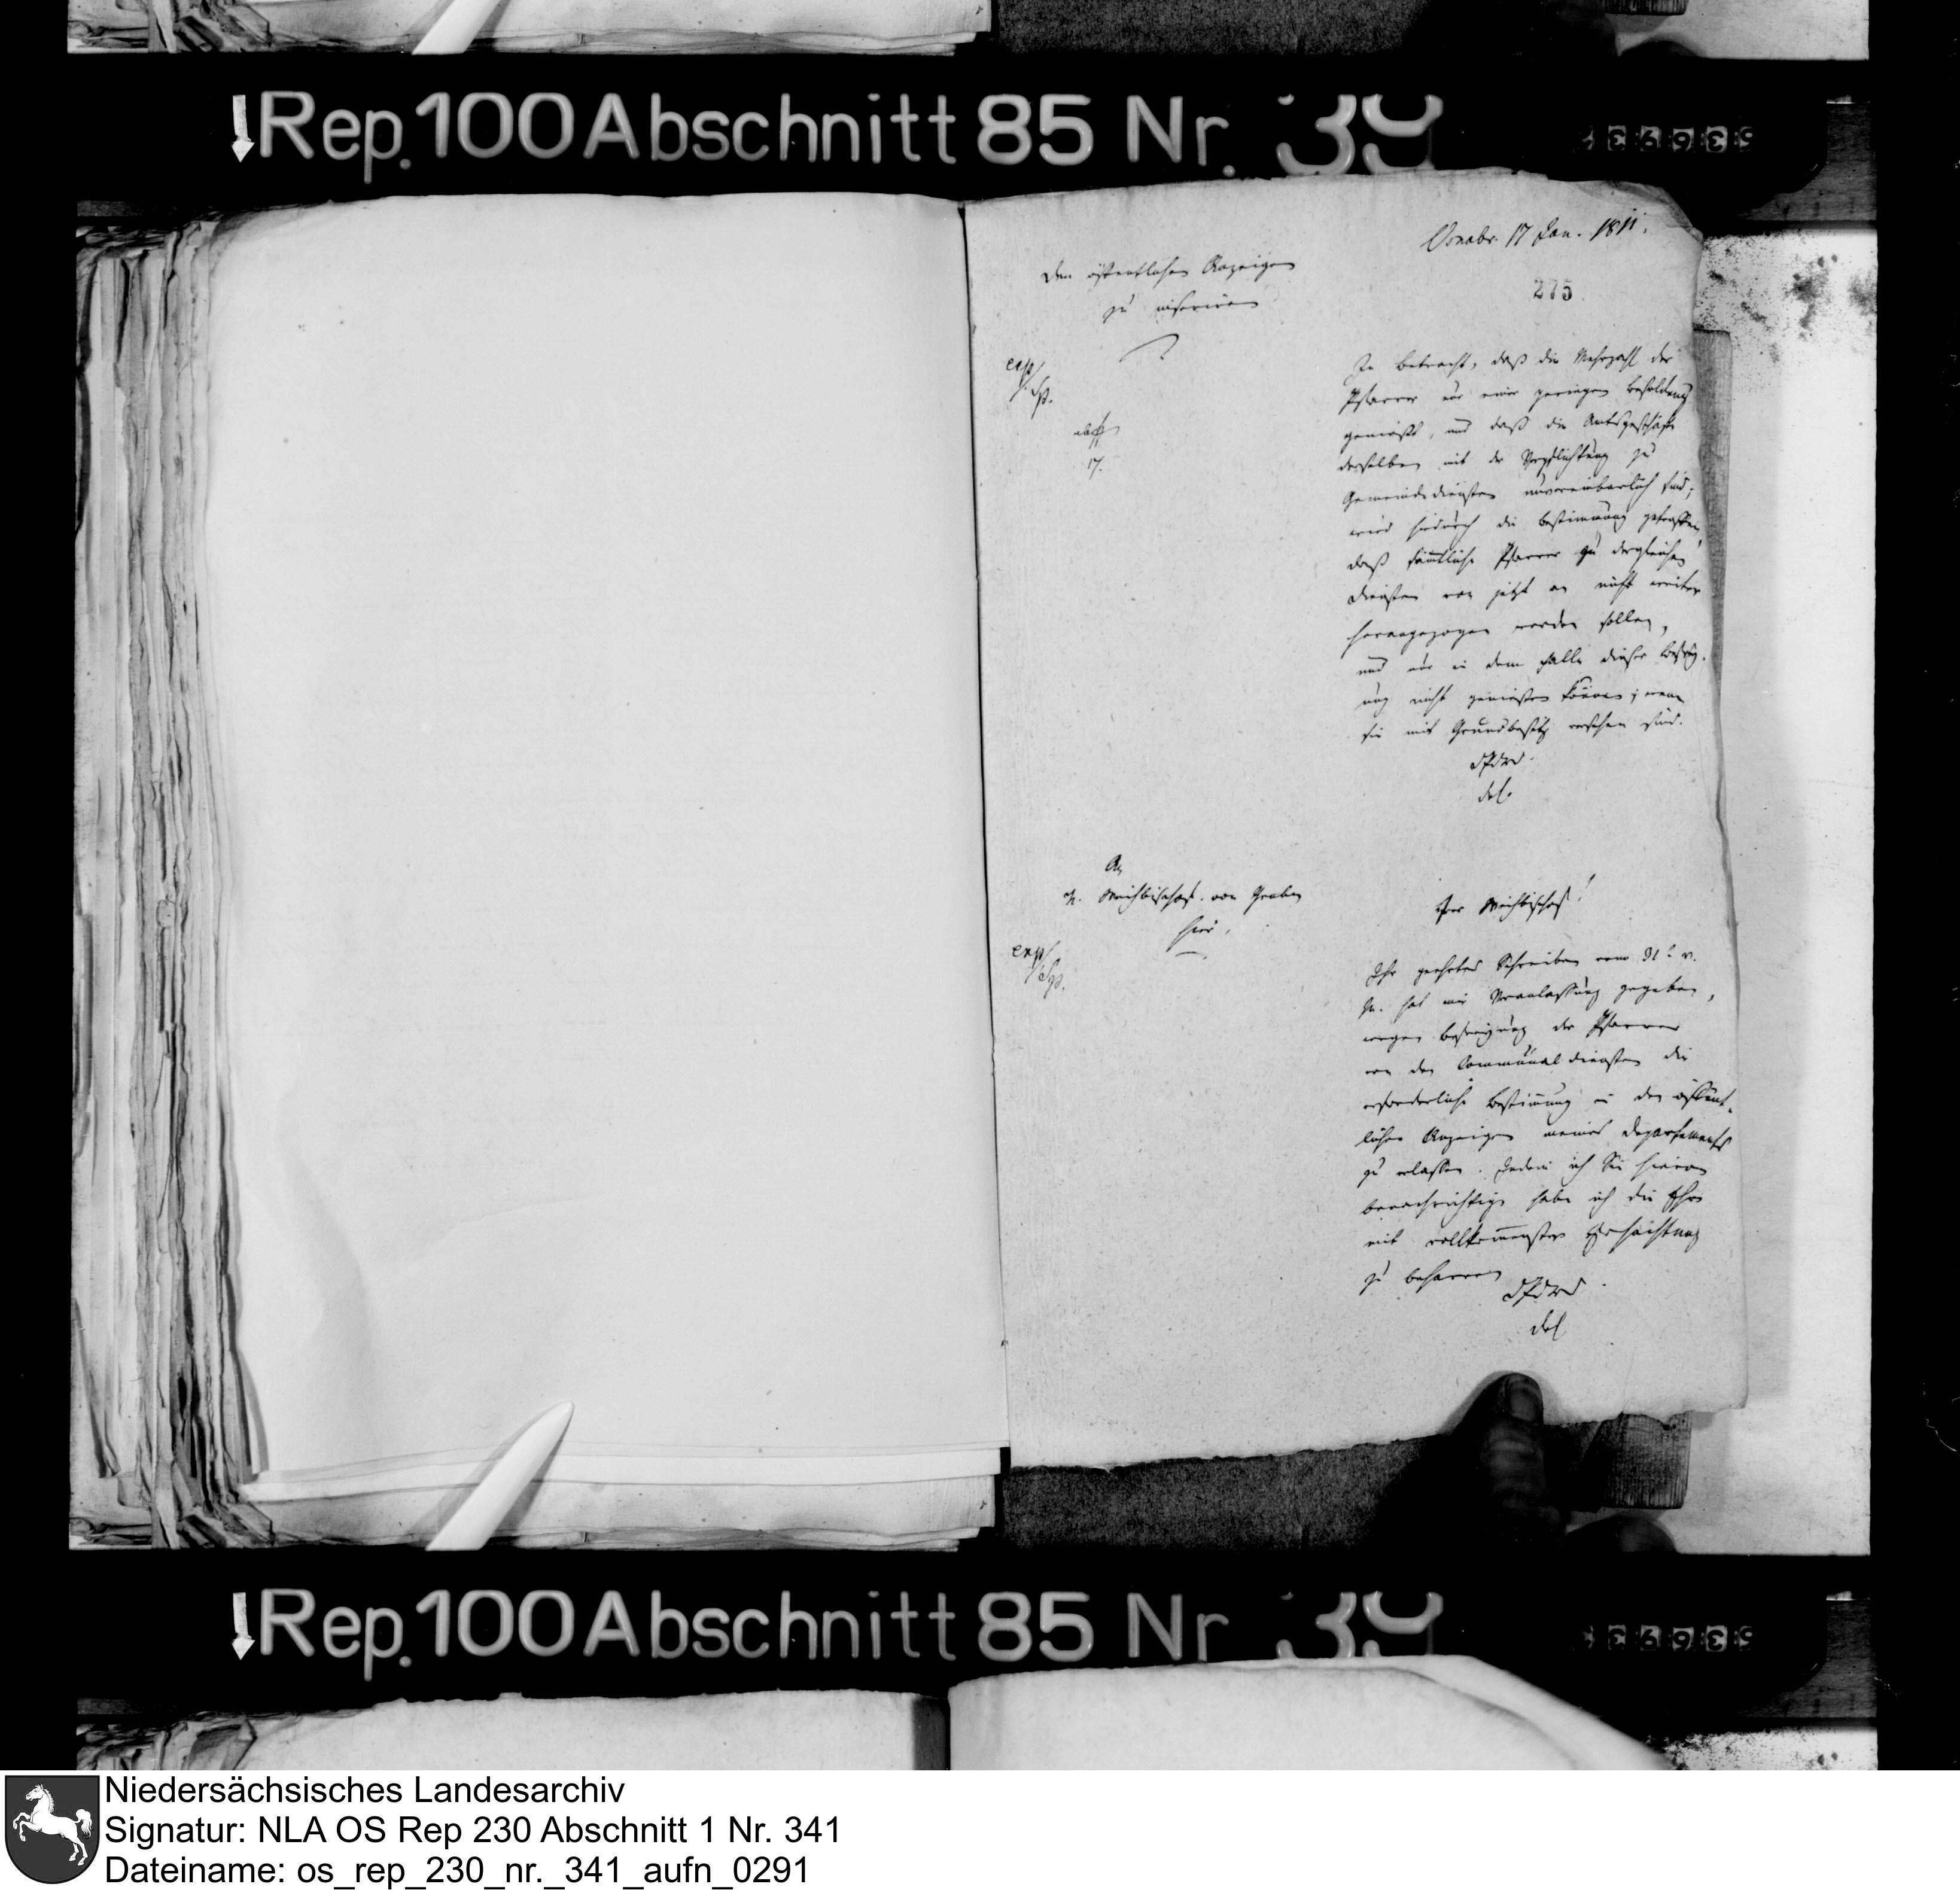 Rep. 100 Abschnitt 85 Nr. 39
Osnabr. 17 Jan. 1811.
275
Den öffentlichen Anzeigen
zu inseriren
exp
17.
In Betracht, daß die Mehrzahl der
Pfarrer nur einer geringen Besoldung
genießt, und daß die Amtsgeschäfte
derselben mit der Verpflichtung zu
Gemeindediensten unvereinbarlich sind;
wird hiedurch die Bestimmung getroffen,
daß sämtliche Pfarrer zu dergleichen
Diensten von jetzt an nicht weiter
herangezogen werden sollen,
und nur in dem Falle dieser Befrey-
ung nicht genießen können, wenn
sie mit Grundbesitz versehen sind.
An
H. Weihbischof von Gruben
hier.
exp
Herr Weihbischof!
Ihr geehrtes Schreiben vom 31t v.
M. hat mir Veranlassung gegeben,
wegen Befreyung der Pfarrer
von den Communaldiensten die
erforderliche Bestimmung in den öffent-
lichen Anzeigen meines Departements
zu erlassen. Indem ich Sie hievon
benachrichtige habe ich die Ehre
mit vollkommenster Hochachtung
zu beharren
Rep. 100 Abschnitt 85 Nr 39
Niedersächsisches Landesarchiv
Signatur: NLA OS Rep 230 Abschnitt 1 Nr. 341
Dateiname: os_rep_230_nr._341_aufn_0291